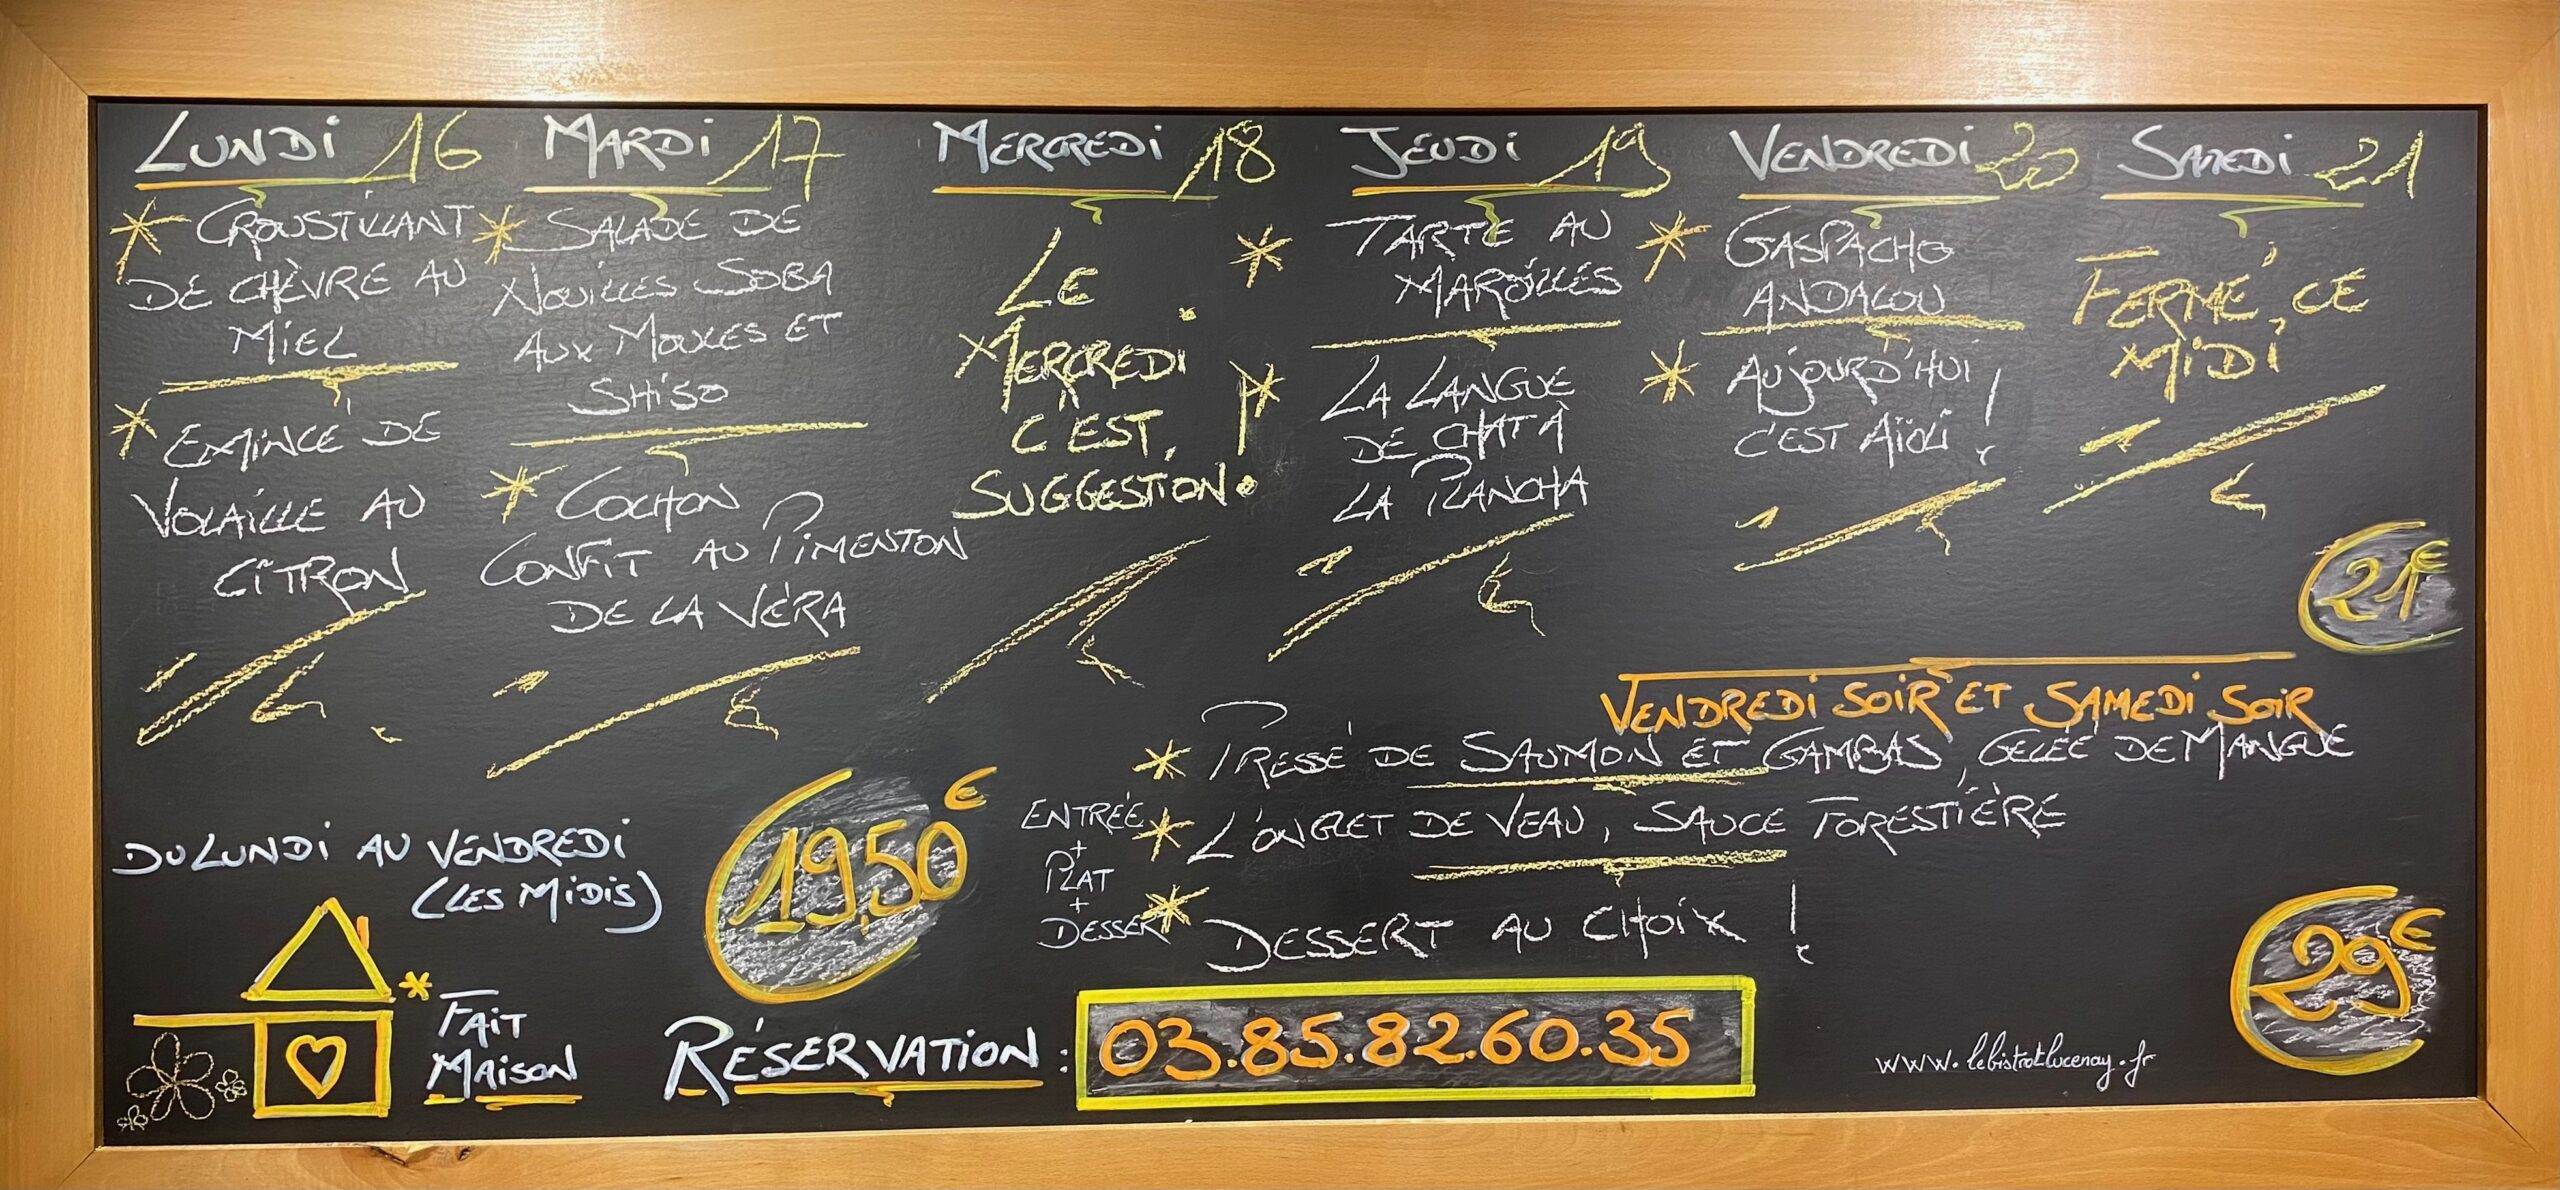 LUNDI 16
* CROUSTILLANT
DE CHÈVRE AU
MIEL
* EMINCÉ DE
VOLAILLE AU
CITRON
MARDI 17
* SALADE DE
NOUILLES SOBA
AUX MOULES ET
SHISO
* COCHON
CONFIT AU PIMENTON
DE LA VÉRA
MERCREDI 18
LE
MERCREDI
C'EST
SUGGESTION !
JEUDI 19
* TARTE AU
MAROILLES
* LA LANGUE
DE CHAT À
LA PLANCHA
VENDREDI 20
* GASPACHO
ANDALOU
* AUJOURD'HUI
C'EST AÏOLI !
SAMEDI 21
FERMÉ CE
MIDI
21€
VENDREDI SOIR ET SAMEDI SOIR
* PRESSÉ DE SAUMON ET GAMBAS, GELÉE DE MANGUE
* L'ONGLET DE VEAU, SAUCE FORESTIÈRE
* DESSERT AU CHOIX !
29€
DU LUNDI AU VENDREDI
(LES MIDIS)
19,50€
ENTRÉE
+
PLAT
+
DESSERT
* FAIT
MAISON
RÉSERVATION : 03.85.82.60.35
www.lebistrotlucenay.fr